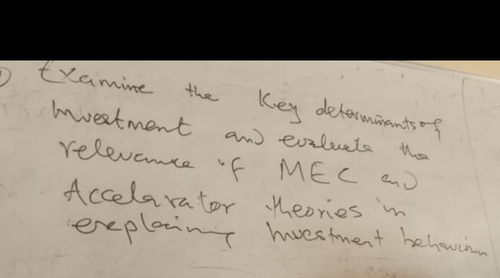 Examine the Key determinants of
Investment and evaluate the
relevance of MEC and
Accelarator theories in
explaining Investment behaviour